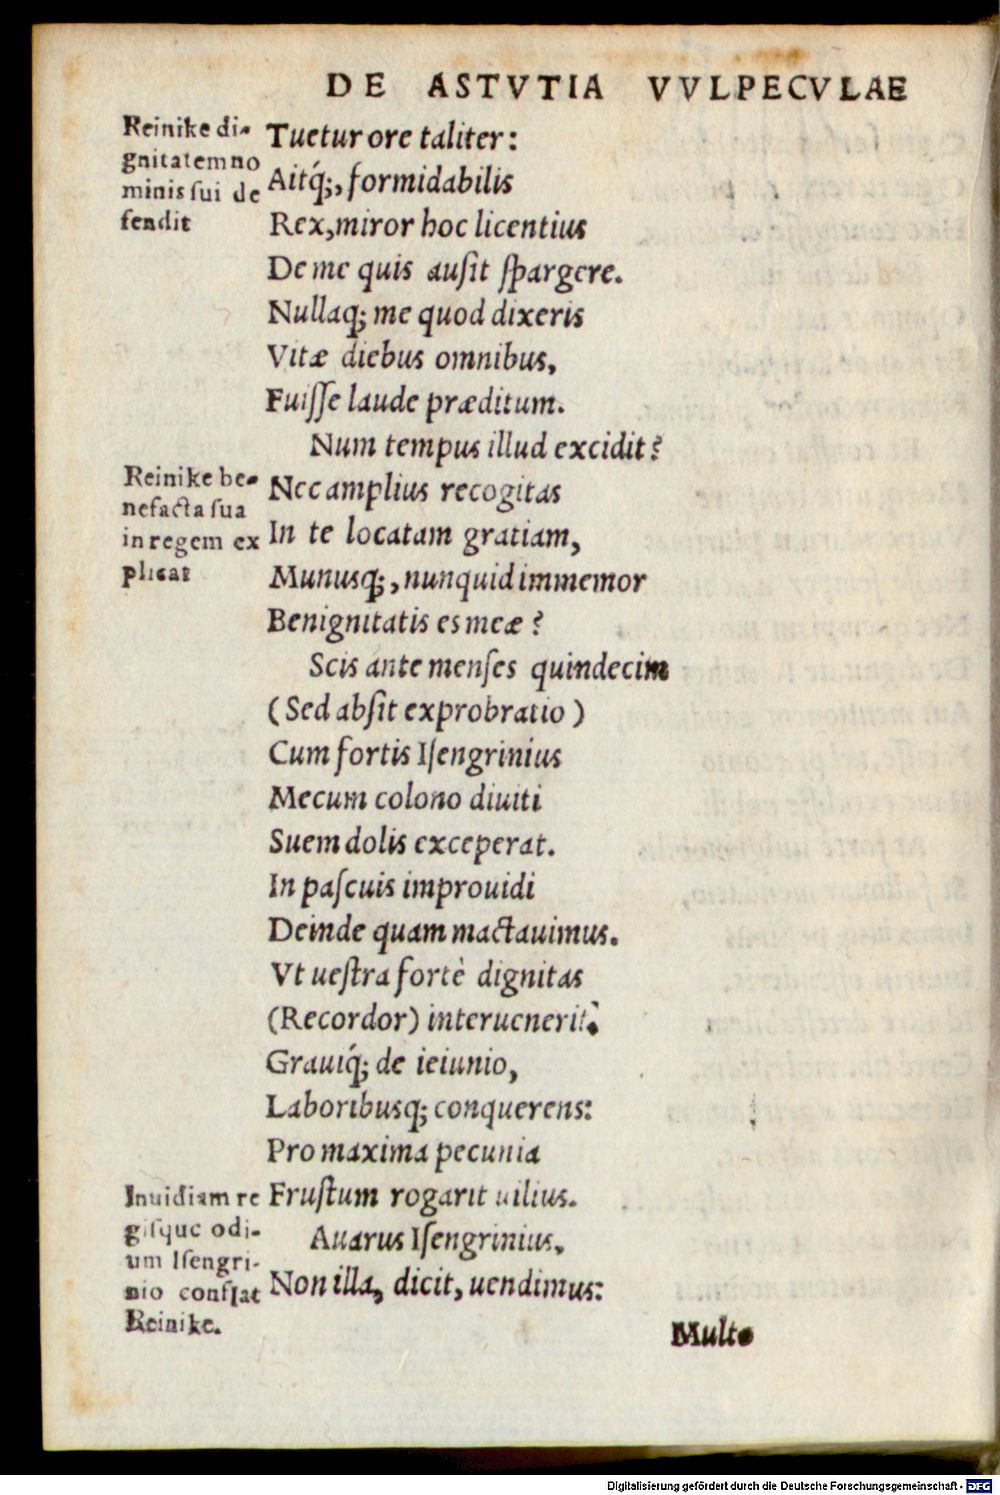 DE ASTVTIA VVLPECVLAE
Reinike di-
gnitatem no
minis sui de
fendit
Tuetur ore taliter:
Aitq́;, formidabilis
Rex, miror hoc licentius
De me quis ausit spargere.
Nullaq; me quod dixeris
Vitæ diebus omnibus,
Fuisse laude præditum.
Num tempus illud excidit?
Reinike be-
nefacta sua
in regem ex
plicat
Nec amplius recogitas
In te locatam gratiam,
Munusq;, nunquid immemor
Benignitatis es meæ?
Scis ante menses quindecim
(Sed absit exprobratio)
Cum fortis Isengrinius
Mecum colono diuiti
Suem dolis exceperat.
In pascuis improuidi
Deinde quam mactauimus.
Vt uestra fortè dignitas
(Recordor) interuenerit?
Grauiq́; de ieiunio,
Laboribusq; conquerens:
Pro maxima pecunia
Inuidiam re
gisque odi-
um Isengri-
nio conflat
Reinike.
Frustum rogarit uilius.
Auarus Isengrinius,
Non illa, dicit, uendimus:
Multo
Digitalisierung gefördert durch die Deutsche Forschungsgemeinschaft - DFG